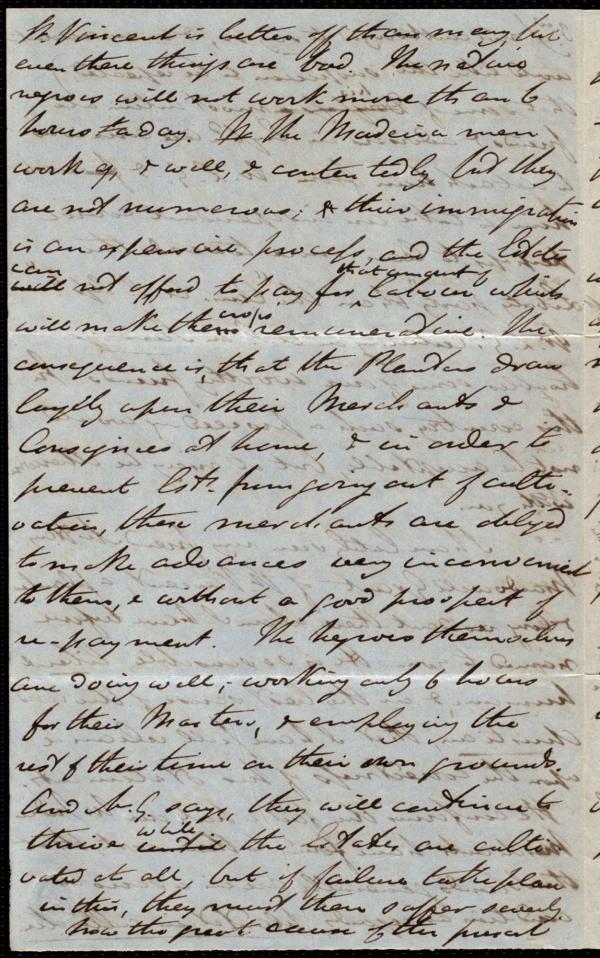 St. Vincent is better off than many but
even there things are bad. The native
negroes will not work more than 6
hours to a day. The Madeira men
work & well, & contentedly but they
are not numerous; & their immigration
is an expensive process, and the Estates
can
will not afford to pay for that amount of labour which
will make the crops remunerative. The
consequence is, that the Planters draw
largely upon their Merchants &
Consignees at home, & in order to
prevent Ests. from going out of culti-
vation, these merchants are obliged
to make advances very inconvenient
to them, & without a good prospect of
re-payment. The negroes themselves
are doing well; working only 6 hours
for their Masters, & employing the
rest of their time on their own grounds.
And says, they will continue to
while
thrive until the Estates are culti
vated at all, but if failure take place
in this, they must then suffer severely
Now the great cause of this present